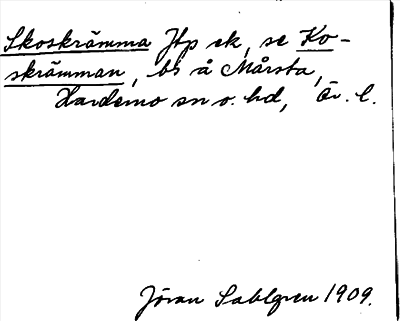 Skoskrämma Jfp ek, se Ko-
skrämman, bs å Mårsta,
Hardemo sn o. hd, Ör. l.
Jöran Sahlgren 1909.